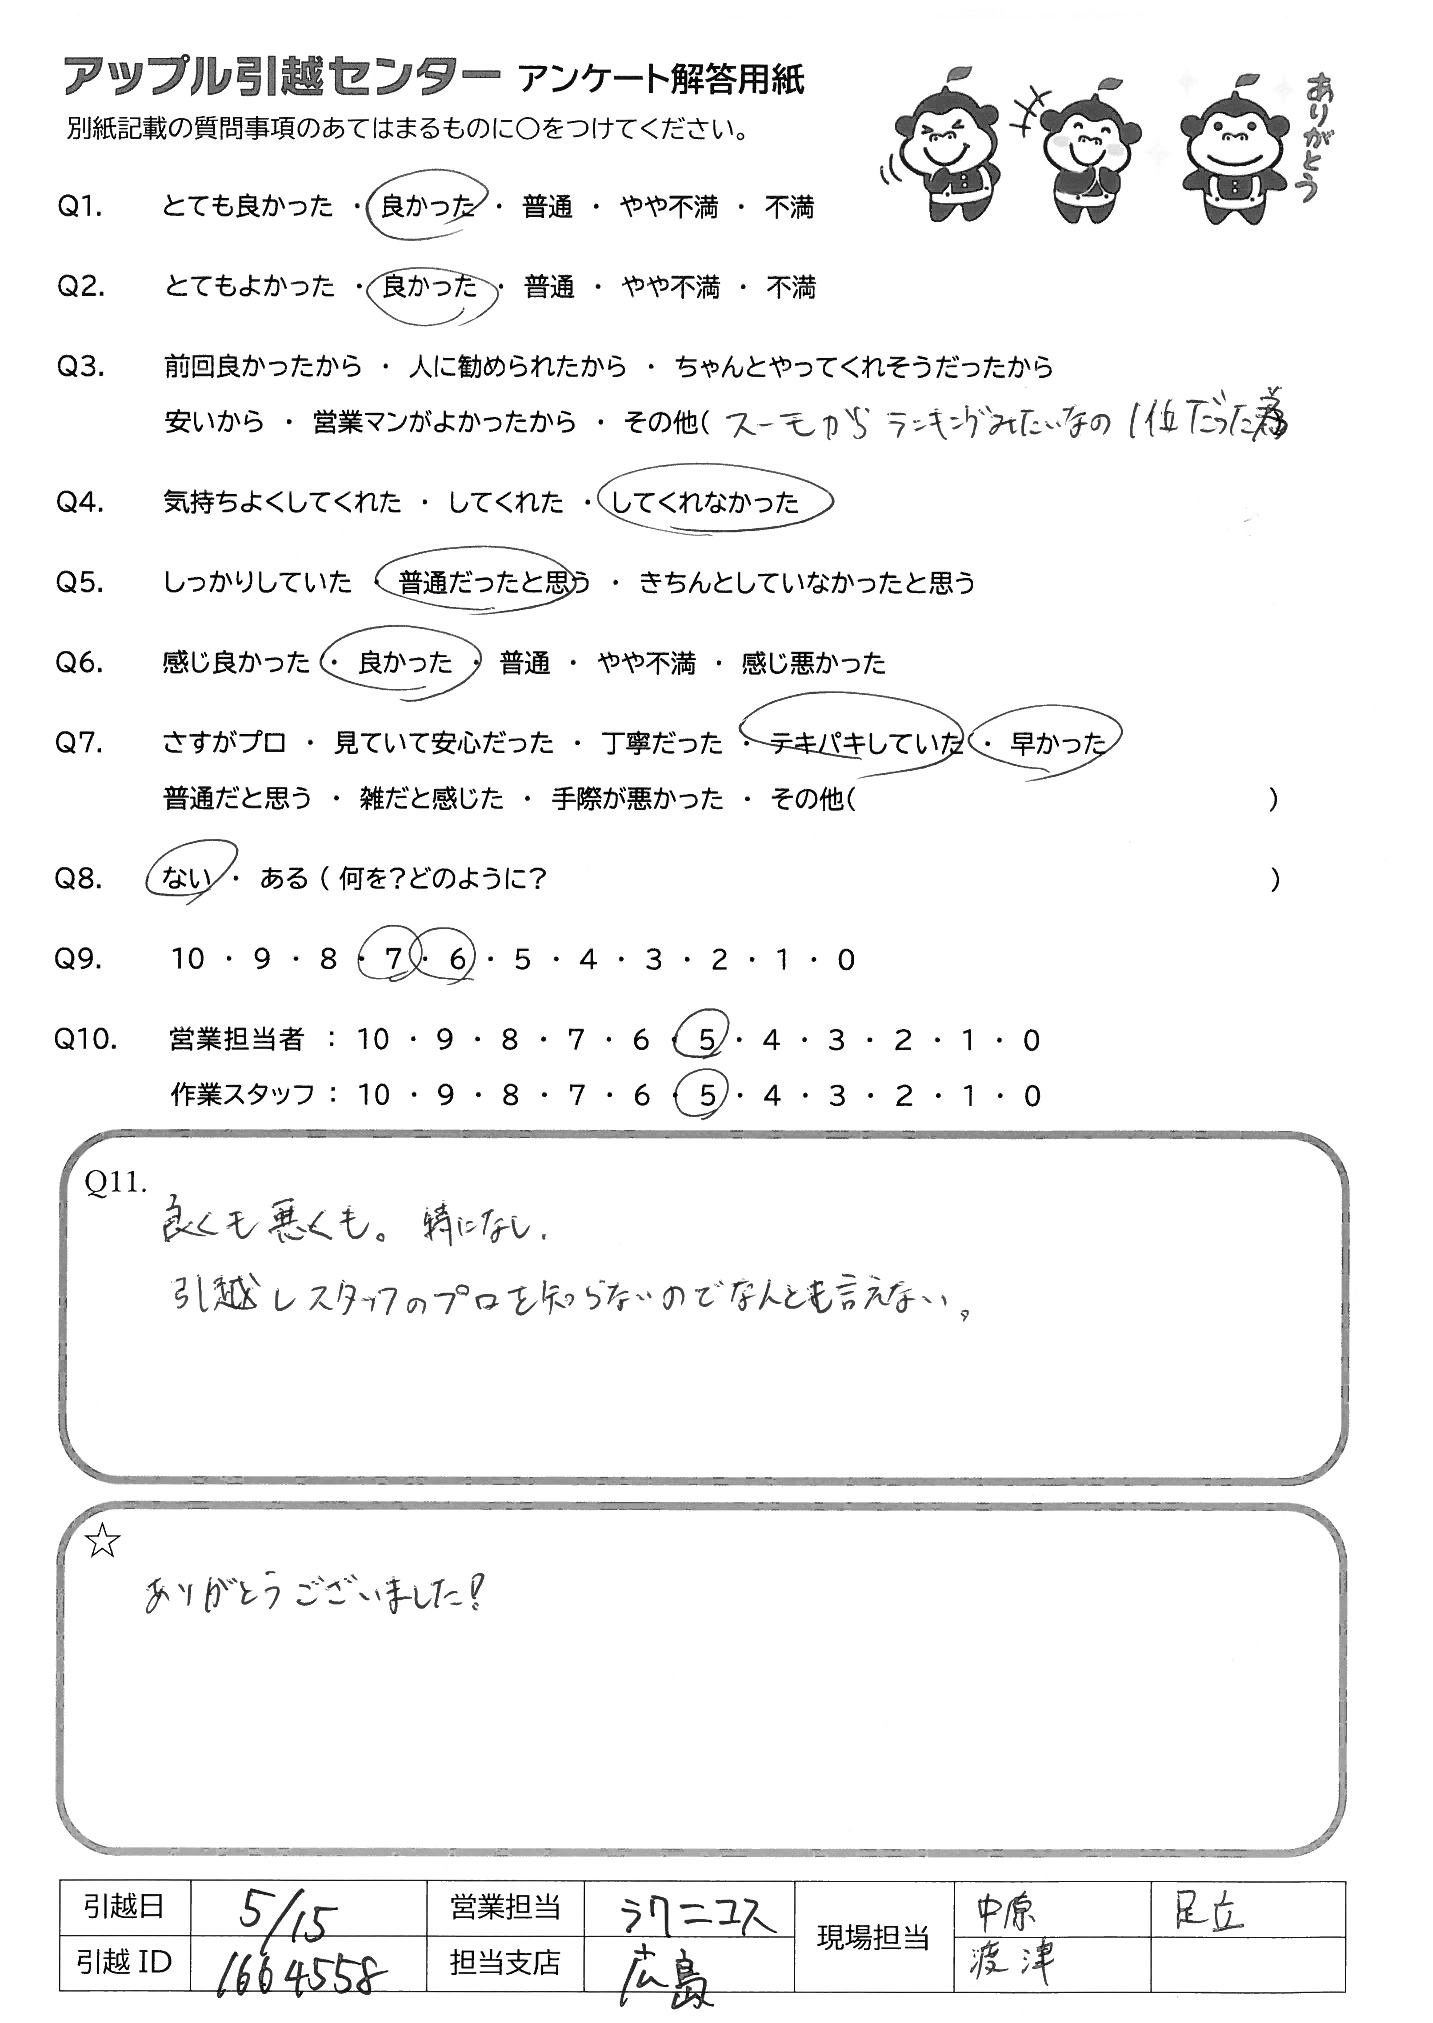 アップル引越センター アンケート解答用紙
ありがとう
別紙記載の質問事項のあてはまるものに○をつけてください。
Q1. とても良かった ・ 良かった ・ 普通 ・ やや不満 ・ 不満
Q2. とてもよかった ・ 良かった ・ 普通 ・ やや不満 ・ 不満
Q3. 前回良かったから ・ 人に勧められたから ・ ちゃんとやってくれそうだったから
安いから ・ 営業マンがよかったから ・ その他( スーモから ランキングみたいなの 1位だった為
Q4. 気持ちよくしてくれた ・ してくれた ・ してくれなかった
Q5. しっかりしていた ・ 普通だったと思う ・ きちんとしていなかったと思う
Q6. 感じ良かった ・ 良かった ・ 普通 ・ やや不満 ・ 感じ悪かった
Q7. さすがプロ ・ 見ていて安心だった ・ 丁寧だった ・ テキパキしていた ・ 早かった
普通だと思う ・ 雑だと感じた ・ 手際が悪かった ・ その他( )
Q8. ない ・ ある ( 何を?どのように? )
Q9. 10 ・ 9 ・ 8 ・ 7 ・ 6 ・ 5 ・ 4 ・ 3 ・ 2 ・ 1 ・ 0
Q10. 営業担当者 : 10 ・ 9 ・ 8 ・ 7 ・ 6 ・ 5 ・ 4 ・ 3 ・ 2 ・ 1 ・ 0
作業スタッフ : 10 ・ 9 ・ 8 ・ 7 ・ 6 ・ 5 ・ 4 ・ 3 ・ 2 ・ 1 ・ 0
Q11.
良くも悪くも。特になし.
引越しスタッフのプロを知らないのでなんとも言えない。
☆
ありがとうございました!
引越日 5/15 営業担当 ラクニコス 現場担当 中原 足立
引越ID 1664558 担当支店 広島 渡津